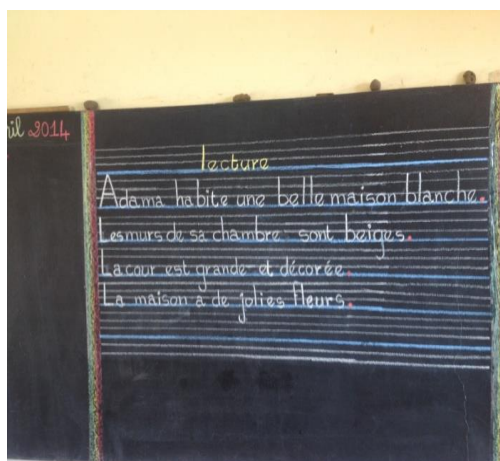 ril 2014
lecture
Adama habite une belle maison blanche.
Les murs de sa chambre sont beiges.
La cour est grande et décorée.
La maison a de jolies fleurs.